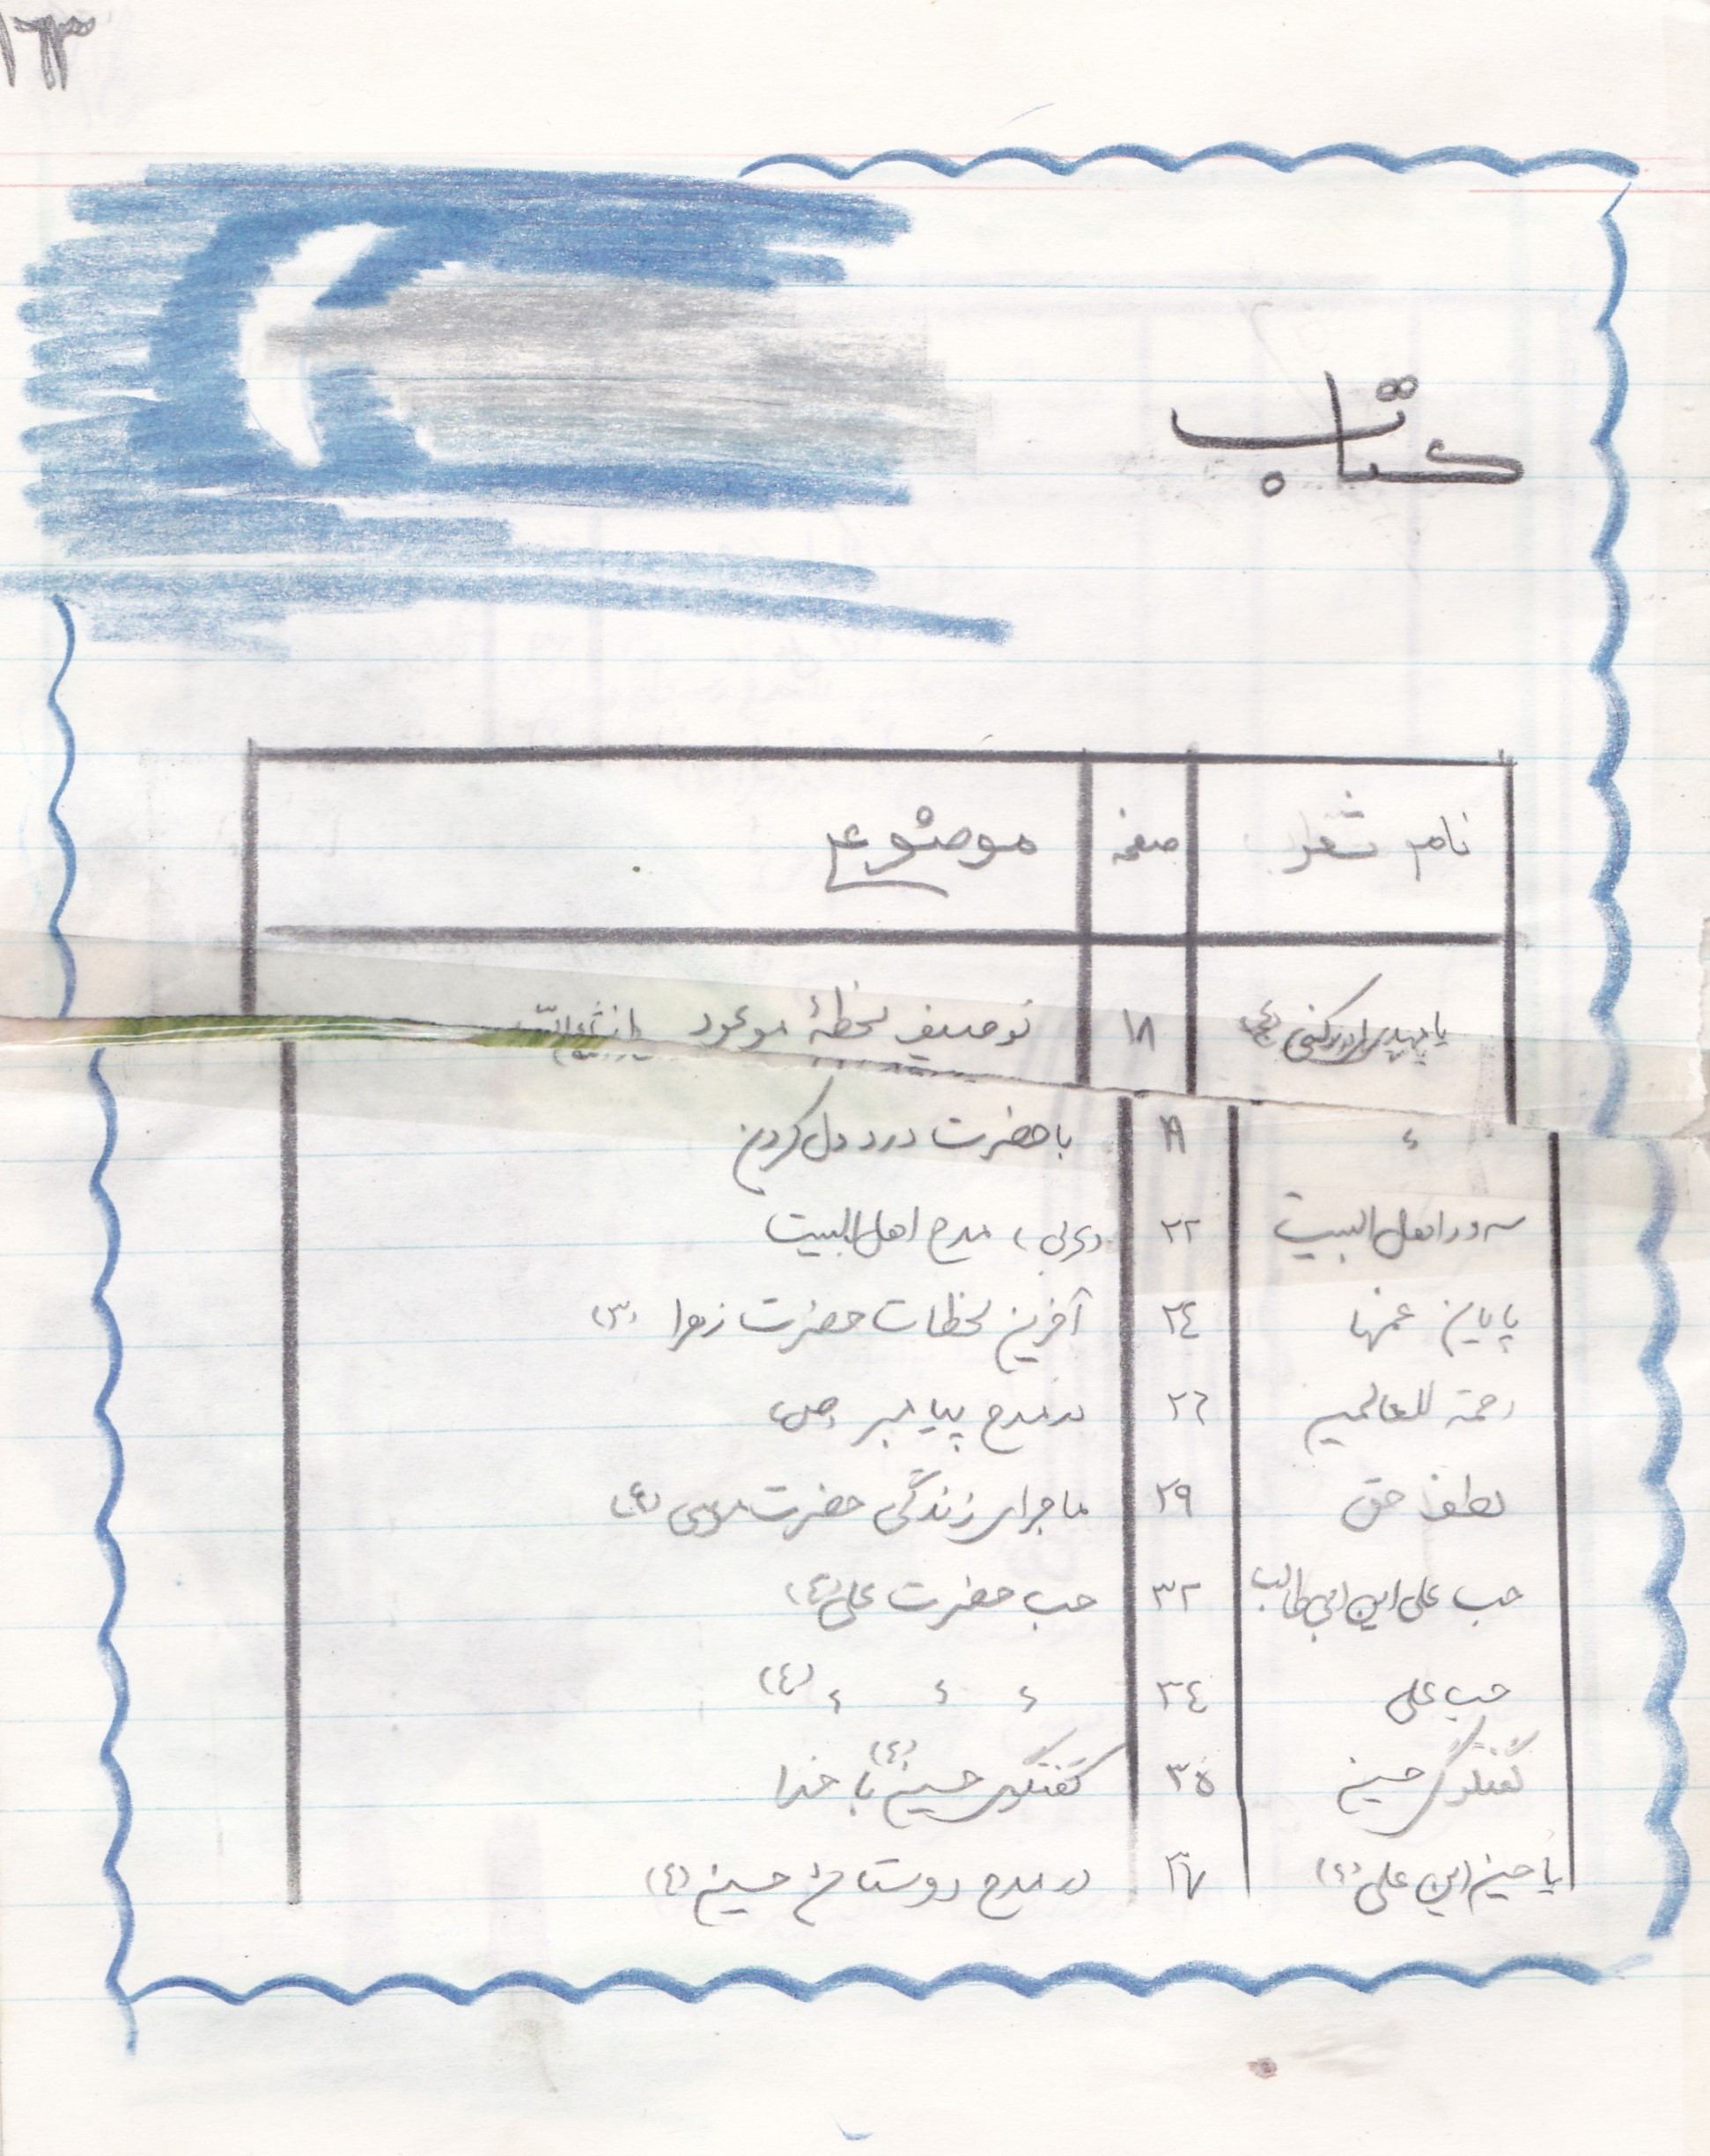 ۱۶۳
کتاب
نام شعر صفحه موضوع
یا مهدی ادرکنی (ع) ۱۸ توصیف لحظهٔ موعود انشاءالله
؛ ۱۹ با حضرت درد دل کردن
سرود اهل البیت ۲۲ (عربی) مدح اهل البیت
پایان غمها ۲٤ آخرین لحظات حضرت زهرا (س)
رحمة للعالمین ۲۶ در مدح پیامبر (ص)
لطف حق ۲۹ ماجرای زندگی حضرت موسی (ع)
حب علی ابن ابی طالب ۳۲ حب حضرت علی (ع)
حب علی ۳٤ ؛ ؛ ؛ (ع)
گفتگوی حسین ۳۵ گفتگوی حسین (ع) با خدا
یا حسین ابن علی (ع) ۳۷ در مدح حسین (ع)